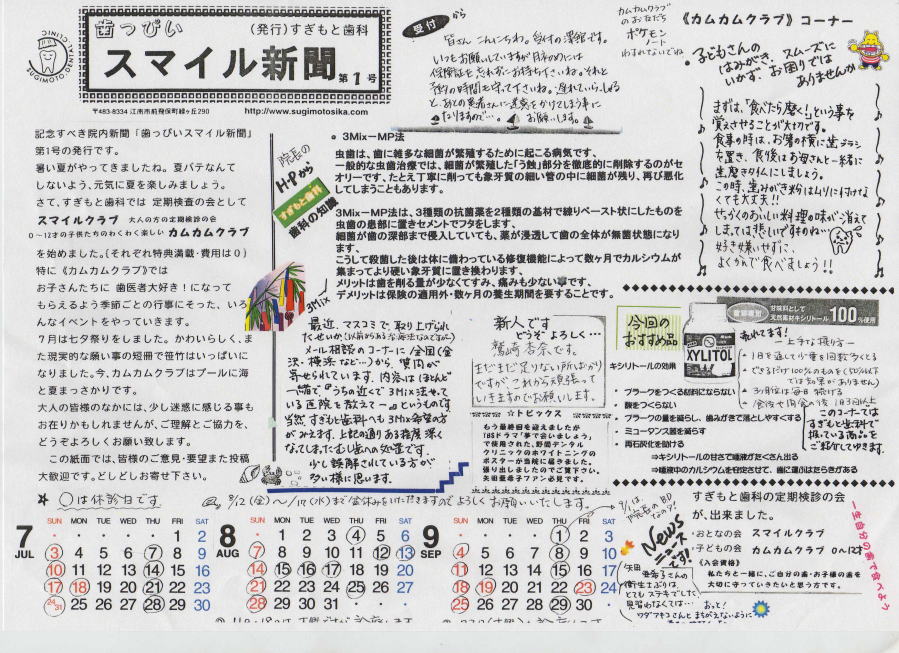 歯っぴい
(発行)すぎもと歯科
スマイル新聞 第1号
〒483-8334 江南市前飛保町緑ヶ丘290
http://www.sugimotosika.com
記念すべき院内新聞「歯っぴいスマイル新聞」
第1号の発行です。
暑い夏がやってきましたね。夏バテなんて
しないよう、元気に夏を楽しみましょう。
さて、すぎもと歯科では 定期検査の会として
スマイルクラブ 大人の方の定期検診の会
0~12才の子供たちのわくわく楽しい カムカムクラブ
を始めました。(それぞれ特典満載・費用は0)
特に《カムカムクラブ》では
お子さんたちに 歯医者大好き!になって
もらえるよう季節ごとの行事にそった、いろ
んなイベントをやっていきます。
7月は七夕祭りをしました。かわいらしく、ま
た現実的な願い事の短冊で笹竹はいっぱいに
なりました。今、カムカムクラブはプールに海
と夏まっさかりです。
大人の皆様のなかには、少し迷惑に感じる事も
お在りかもしれませんが、ご理解とご協力を、
どうぞよろしくお願い致します。
この紙面では、皆様のご意見・要望また投稿
大歓迎です。どしどしお寄せ下さい。
受付から
皆さん こんにちわ。受付の澤館です。
いつもお願いしていますが月初めには
保険証を忘れずにお持ち下さいね。それと
予約の時間も守って下さいね。遅れていらっしゃる
と、あとの患者さんに迷惑をかけてしまう事に
なりますので…。お願いします。
カムカムクラブ
のおともだち
ポケモン
ノート
わすれてないでね
院長の
H・Pから
すぎもと歯科
歯科の知識
3Mix-MP法
虫歯は、歯に雑多な細菌が繁殖するために起こる病気です、
一般的な虫歯治療では、細菌が繁殖した「う蝕」部分を徹底的に削除するのがセ
オリーです、たとえ丁寧に削っても象牙質の細い管の中に細菌が残り、再び悪化
してしまうこともあります。
3Mix-MP法は、3種類の抗菌薬を2種類の基材で練りペースト状にしたものを
虫歯の患部に置きセメントでフタをします、
細菌が歯の深部まで侵入していても、薬が浸透して歯の全体が無菌状態になり
ます、
こうして殺菌した後は体に備わっている修復機能によって数ヶ月でカルシウムが
集まってより硬い象牙質に置き換わります、
メリットは歯を削る量が少なくてすみ、痛みも少ない事です、
デメリットは保険の適用外・数ヶ月の養生期間を要することです、
3Mix
最近、マスコミで、取り上げられ
たせいか(以前からある治療法なのですが)
メール相談のコーナーに全国(金
沢・横浜など…)から、質問が
寄せられています。内容はほとんど
一緒で『うちの近くで3Mix法をして
いる医院を教えて〜』というものです
当然、すぎもと歯科へも3Mix希望の方
がみえます。上記の通り ある程度 深く
なってしまったむし歯への処置です。
少し誤解されている方が
多い様に思います。
新人です
どうぞよろしく…
鷲崎杏奈です。
まだまだ足りない所ばかり
ですが、これから頑張って
いきますのでお願いします。
☆トピックス
もう最終回を迎えましたが
TBSドラマ「夢で会いましょう」
で使用された、野間デンタル
クリニックのホワイトニングの
ポスターが当院に届きました。
張り出しましたのでご覧下さい。
矢田亜希子ファン必見です。
《カムカムクラブ》コーナー
子どもさんの
はみがき、スムーズに
いかず、お困りでは
ありませんか
まずは、「食べたら磨く!」という事を
覚えさせることが大切です。
食事の時は、お箸の横に歯ブラシ
を置き、食後はお母さんと一緒に
歯磨きタイムにしましょう。
この時、歯みがき粉はムリに付けな
くても大丈夫!!
せっかくのおいしい料理の味が消えて
しまっては悲しいですものね…
好き嫌いせずに、
よくかんで食べましょう!!
今回の
おすすめ品
XYLITOL
甘味料として
天然素材キシリトール100%使用
キシリトールの効果
プラークをつくる材料にならない
酸をつくらない
プラークの量を減らし、歯みがきで落としやすくする
ミュータンス菌を減らす
再石灰化を助ける
⇒キシリトールの甘さで唾液がたくさん出る
⇒唾液中のカルシウムを安定させて、歯に運ぶはたらきがある
売れてます!
―上手な摂り方―
1日を通して少量を回数多くとる
できるだけ100%のものを(50%以下
では効果がありません)
3ヶ月位は毎日続ける
このコーナーでは
すぎもと歯科で
扱っている商品を
ご紹介してゆきます。
☆ ○は休診日です
8/12(金)〜/17(水)まで盆休みをいただきますのでよろしくお願いします。
9/1は、
院長のBD
なのダ!
7 JUL
SUN MON TUE WED THU FRI SAT
1 2
3 4 5 6 7 8 9
10 11 12 13 14 15 16
17 18 19 20 21 22 23
24/31 25 26 27 28 29 30
8 AUG
SUN MON TUE WED THU FRI SAT
1 2 3 4 5 6
7 8 9 10 11 12 13
14 15 16 17 18 19 20
21 22 23 24 25 26 27
28 29 30 31
9 SEP
SUN MON TUE WED THU FRI SAT
1 2 3
4 5 6 7 8 9 10
11 12 13 14 15 16 17
18 19 20 21 22 23 24
25 26 27 28 29 30
News
ニュース
です!
矢田
亜希子さんの
衛生士ぶりは
とてもステキでした
見習わなくては…
おっと!
ワダアキコさんとまちがえないように
すぎもと歯科の定期検診の会
が、出来ました。
おとなの会 スマイルクラブ
子どもの会 カムカムクラブ 0~12才
《入会資格》
私たちと一緒に、ご自分の歯・お子様の歯を
大切に守っていきたいと思う方です。
一生自分の歯で食べよう